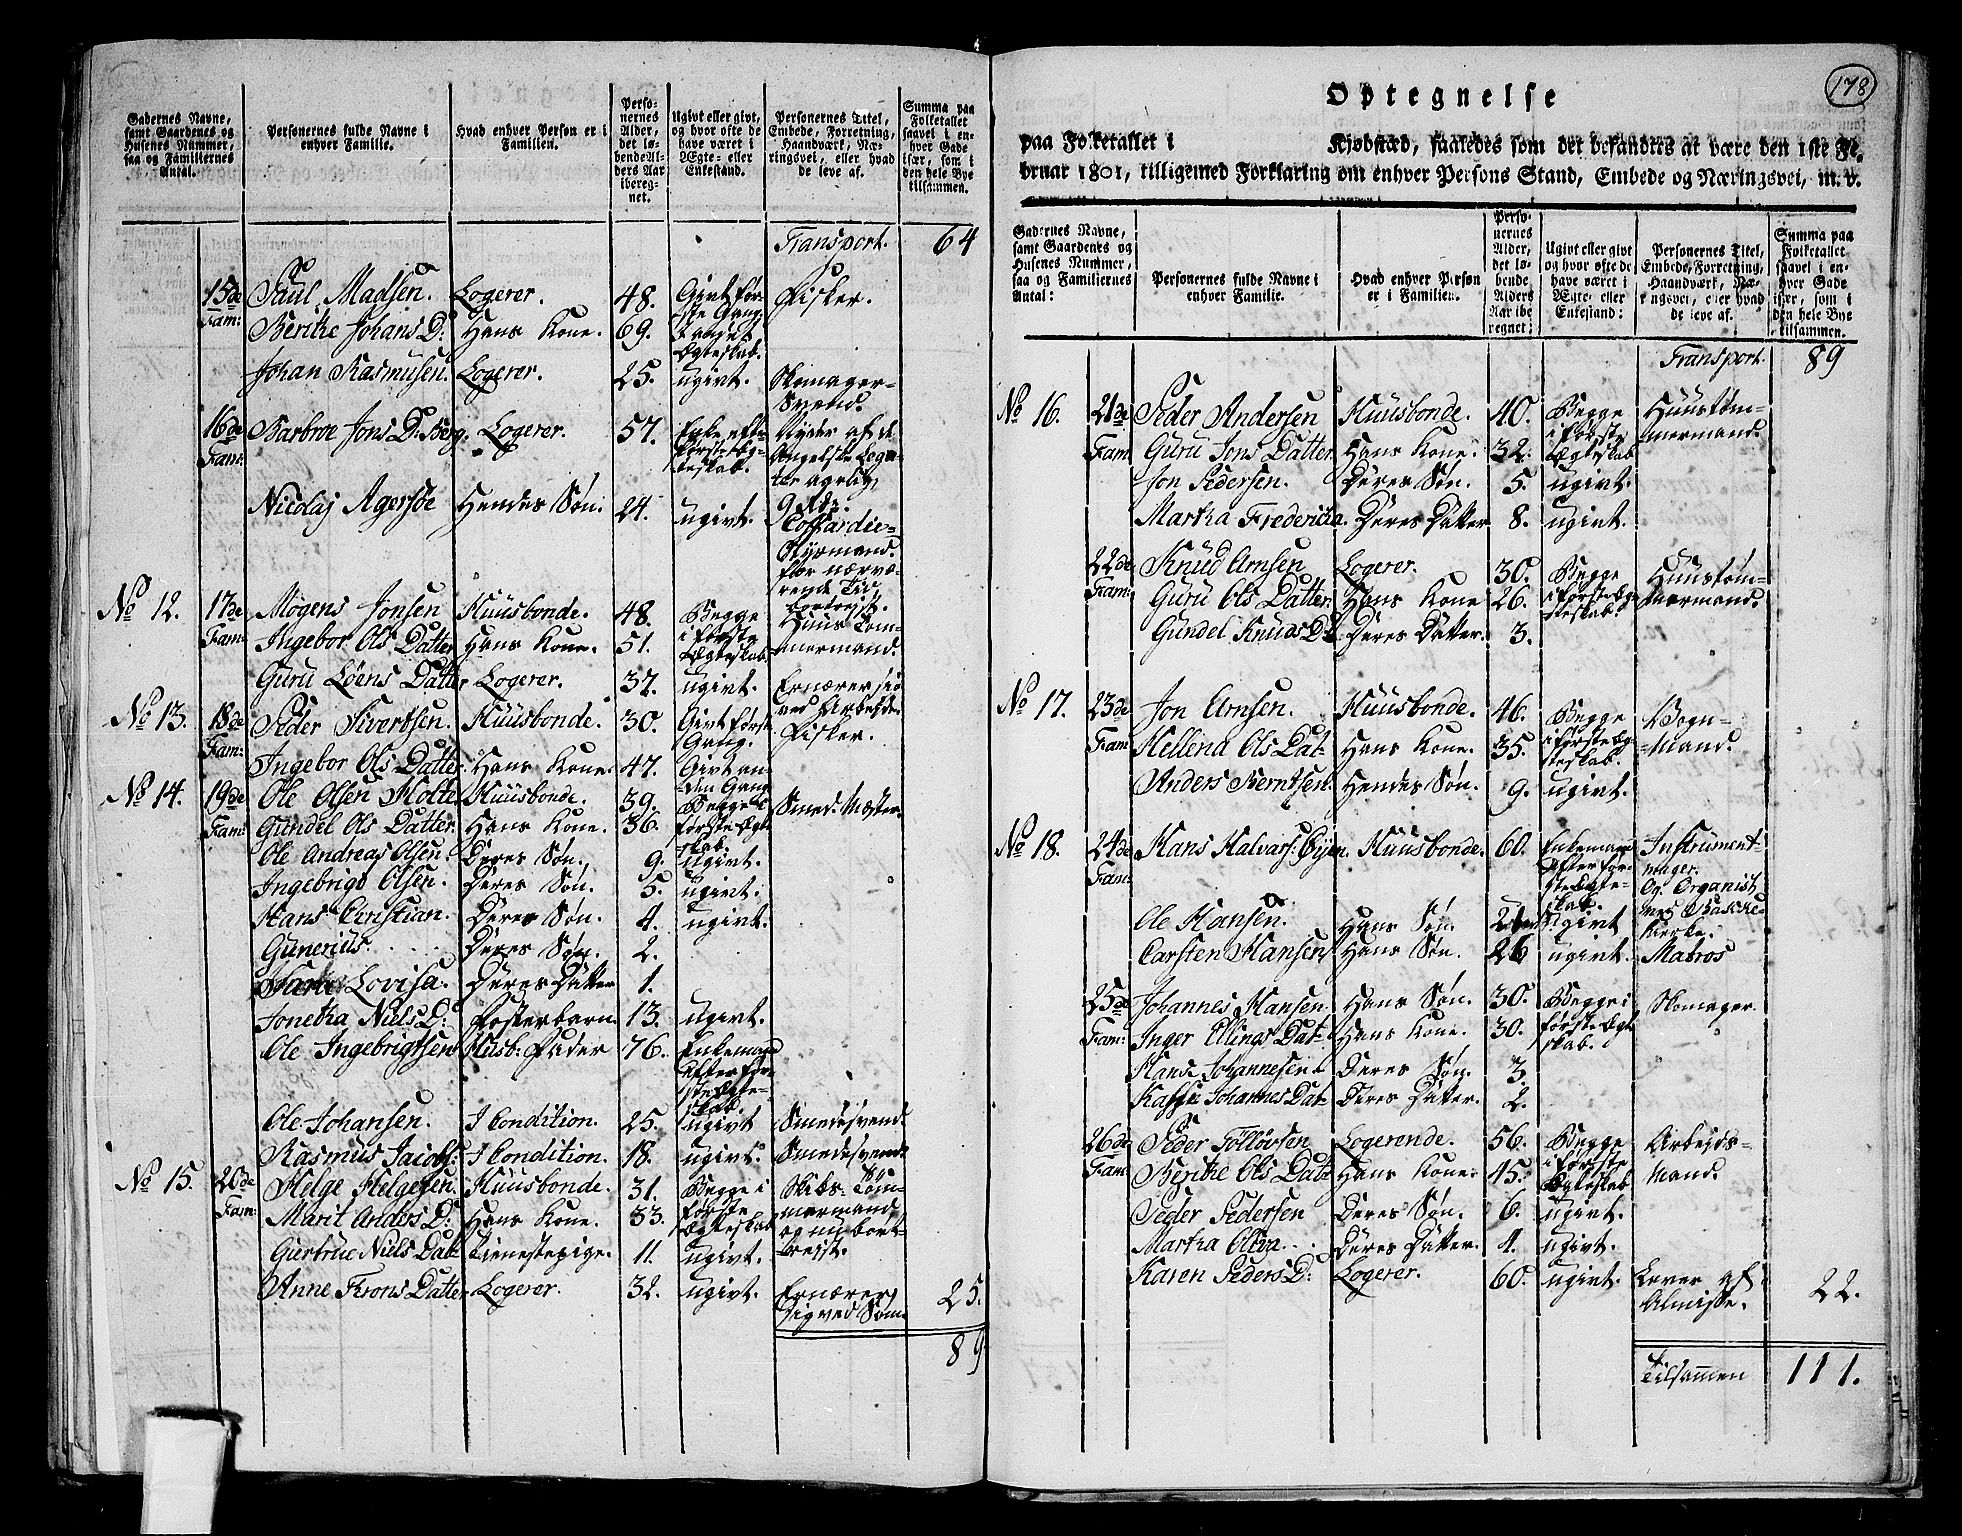 Gadernes Navne, samt Gaardenes og Husenes Nummer, saa og Familiernes Antal.
Personernes fulde Navne i enhver Familie.
Hvad enhver Person er i Familien.
Personernes Alder, det løbende Alders Aar iberegnet.
Ugivt eller givt, og hvor ofte de have været i Ægte- eller Enkestand.
Personernes Titel, Embede, Forretning, Haandværk, Næringsvei, eller hvad de leve af.
Summa paa Folketallet saavel i enhver Gade især, som i den hele Bye tilsammen.
Transport. 64
15de Fam: Paul Madsen. Logerer. 48. Givt første Gang Fisker.
Berithe Johans D: Hans Kone. 69. Ægteskab.
Johan Rasmusen. Logerer. 25. ugivt. Skomager-Svend.
16de Fam: Barbroe Jons D: Berg. Logerer. 57. Enke første Ægteskab. Nyder af de Angelske
Nicolaj Agersøe Hendes Søn. 24. ugivt. Coffardie-Styrmand. for nærværende
No 12. 17de Fam: Mogens Jonsen Huusbonde. 48. Begge i første Ægteskab Huus Tømmermand.
Ingebor Ols Datter Hans Kone. 51.
Guru Löens Datter Logerer. 37. ugivt. Ernærer sig ved Arbejde.
No 13. 18de Fam: Peder Sivertsen. Huusbonde. 30. Givt første Gang. Fisker.
Ingebor Ols Datter. Hans Kone. 47. Givt anden Gang
No 14. 19de Fam: Ole Olsen Holte Huusbonde. 39. Begge i første Ægteskab. Smed-Mæster.
Gundel Ols Datter. Hans Kone. 36.
Ole Andreas Olsen. Deres Søn. 9. ugivt.
Ingebrigt Olsen. Deres Søn. 5. ugivt.
Hans Christian. Deres Søn. 4. ugivt.
Gunerius. Deres Søn. 2.
Lovisa. Deres Datter 1.
Jonetha Niels D: Fosterbarn. 13. ugivt.
Ole Ingebrigtsen Husb: Fader 76. Enkemand Efter første Ægteskab.
Ole Johansen. I Condition. 25. ugivt Smedesvend.
Rasmus Jacobs: I Condition. 18. ugivt. Smedesvend.
No 15. 20de Fam: Helge Helgesen. Huusbonde. 31. Begge i første Ægteskab Skibs-Tømmermand og nu bortreist.
Marit Anders D: Hans Kone. 33.
Giertrue Niels Dat: Tienestepige. 11. ugivt.
Anne Trons Datter Logerer. 32. ugivt. Ernærer sig ved Søm. 25.
89
178
Optegnelse
paa Folketallet i Kjøbstæd, saaledes som det befandtes at være den 1ste Februar 1801, tilligemed Forklaring om enhver Persons Stand, Embede og Næringsvei, m. v.
Gadernes Navne, samt Gaardenes og Husenes Nummer, saa og Familiernes Antal:
Personernes fulde Navne i enhver Familie.
Hvad enhver Person er i Familien.
Personernes Alder, det løbende Alders Aar iberegnet:
Ugivt eller givt og hvor ofte de have været i Ægte- eller Enkestand:
Personernes Titel, Embede, Forretning, Haandværk, Næringsvei, eller hvad de leve af.
Summa paa Folketallet saavel i enhver Gade især, som i den hele Bye tilsammen.
Transport. 89
No 16. 21de Fam: Peder Andersen Huusbonde. 40. Begge i første Ægteskab Huustømmermand.
Guru Jons Datter Hans Kone. 32.
Jon Pedersen. Deres Søn. 5. ugivt.
Martha Fredericha. Deres Datter 8. ugivt.
22de Fam: Knud Arnsen Logerer. 30. Begge i første Ægteskab. Huustømmermand.
Guru Ols Datter. Hans Kone 26.
Gundel Knuds D: Deres Datter. 3.
No 17. 23de Fam: Jon Arnsen. Huusbonde. 46. Begge i første Ægteskab. Vogn-Mand.
Hellena Ols Dat: Hans Kone. 35.
Anders Berntsen. Hendes Søn. 9. ugivt.
No 18. 24de Fam: Hans Halvars: Øyen. Huusbonde. 60. Enkemand Efter første Ægteskab. Instrumentmager. Og Organist ved Kierke.
Ole Hansen. Hans Søn. ugivt
Carsten Hansen. Hans Søn. 26 ugivt. Matros
25de Fam: Johannes Hansen. Hans Søn. 30. Begge i første Ægteskab. Skomager.
Inger Ellings Dat: Hans Kone. 30.
Hans Johannesen Deres Søn. 3.
Johannes Dat: Deres Datter. 2.
26de Fam: Peder Tolløvsen Logerende. 56. Begge i første Ægteskab Arbejds-Mand.
Berithe Ols Dat: Hans Kone: 45.
Peder Pedersen Deres Søn. 6. ugivt.
Martha Oliva. Deres Datter. 4. ugivt.
Karen Peders D: Logerer. 60. ugivt. Lever af Almisse. 22.
Tilsammen 111.